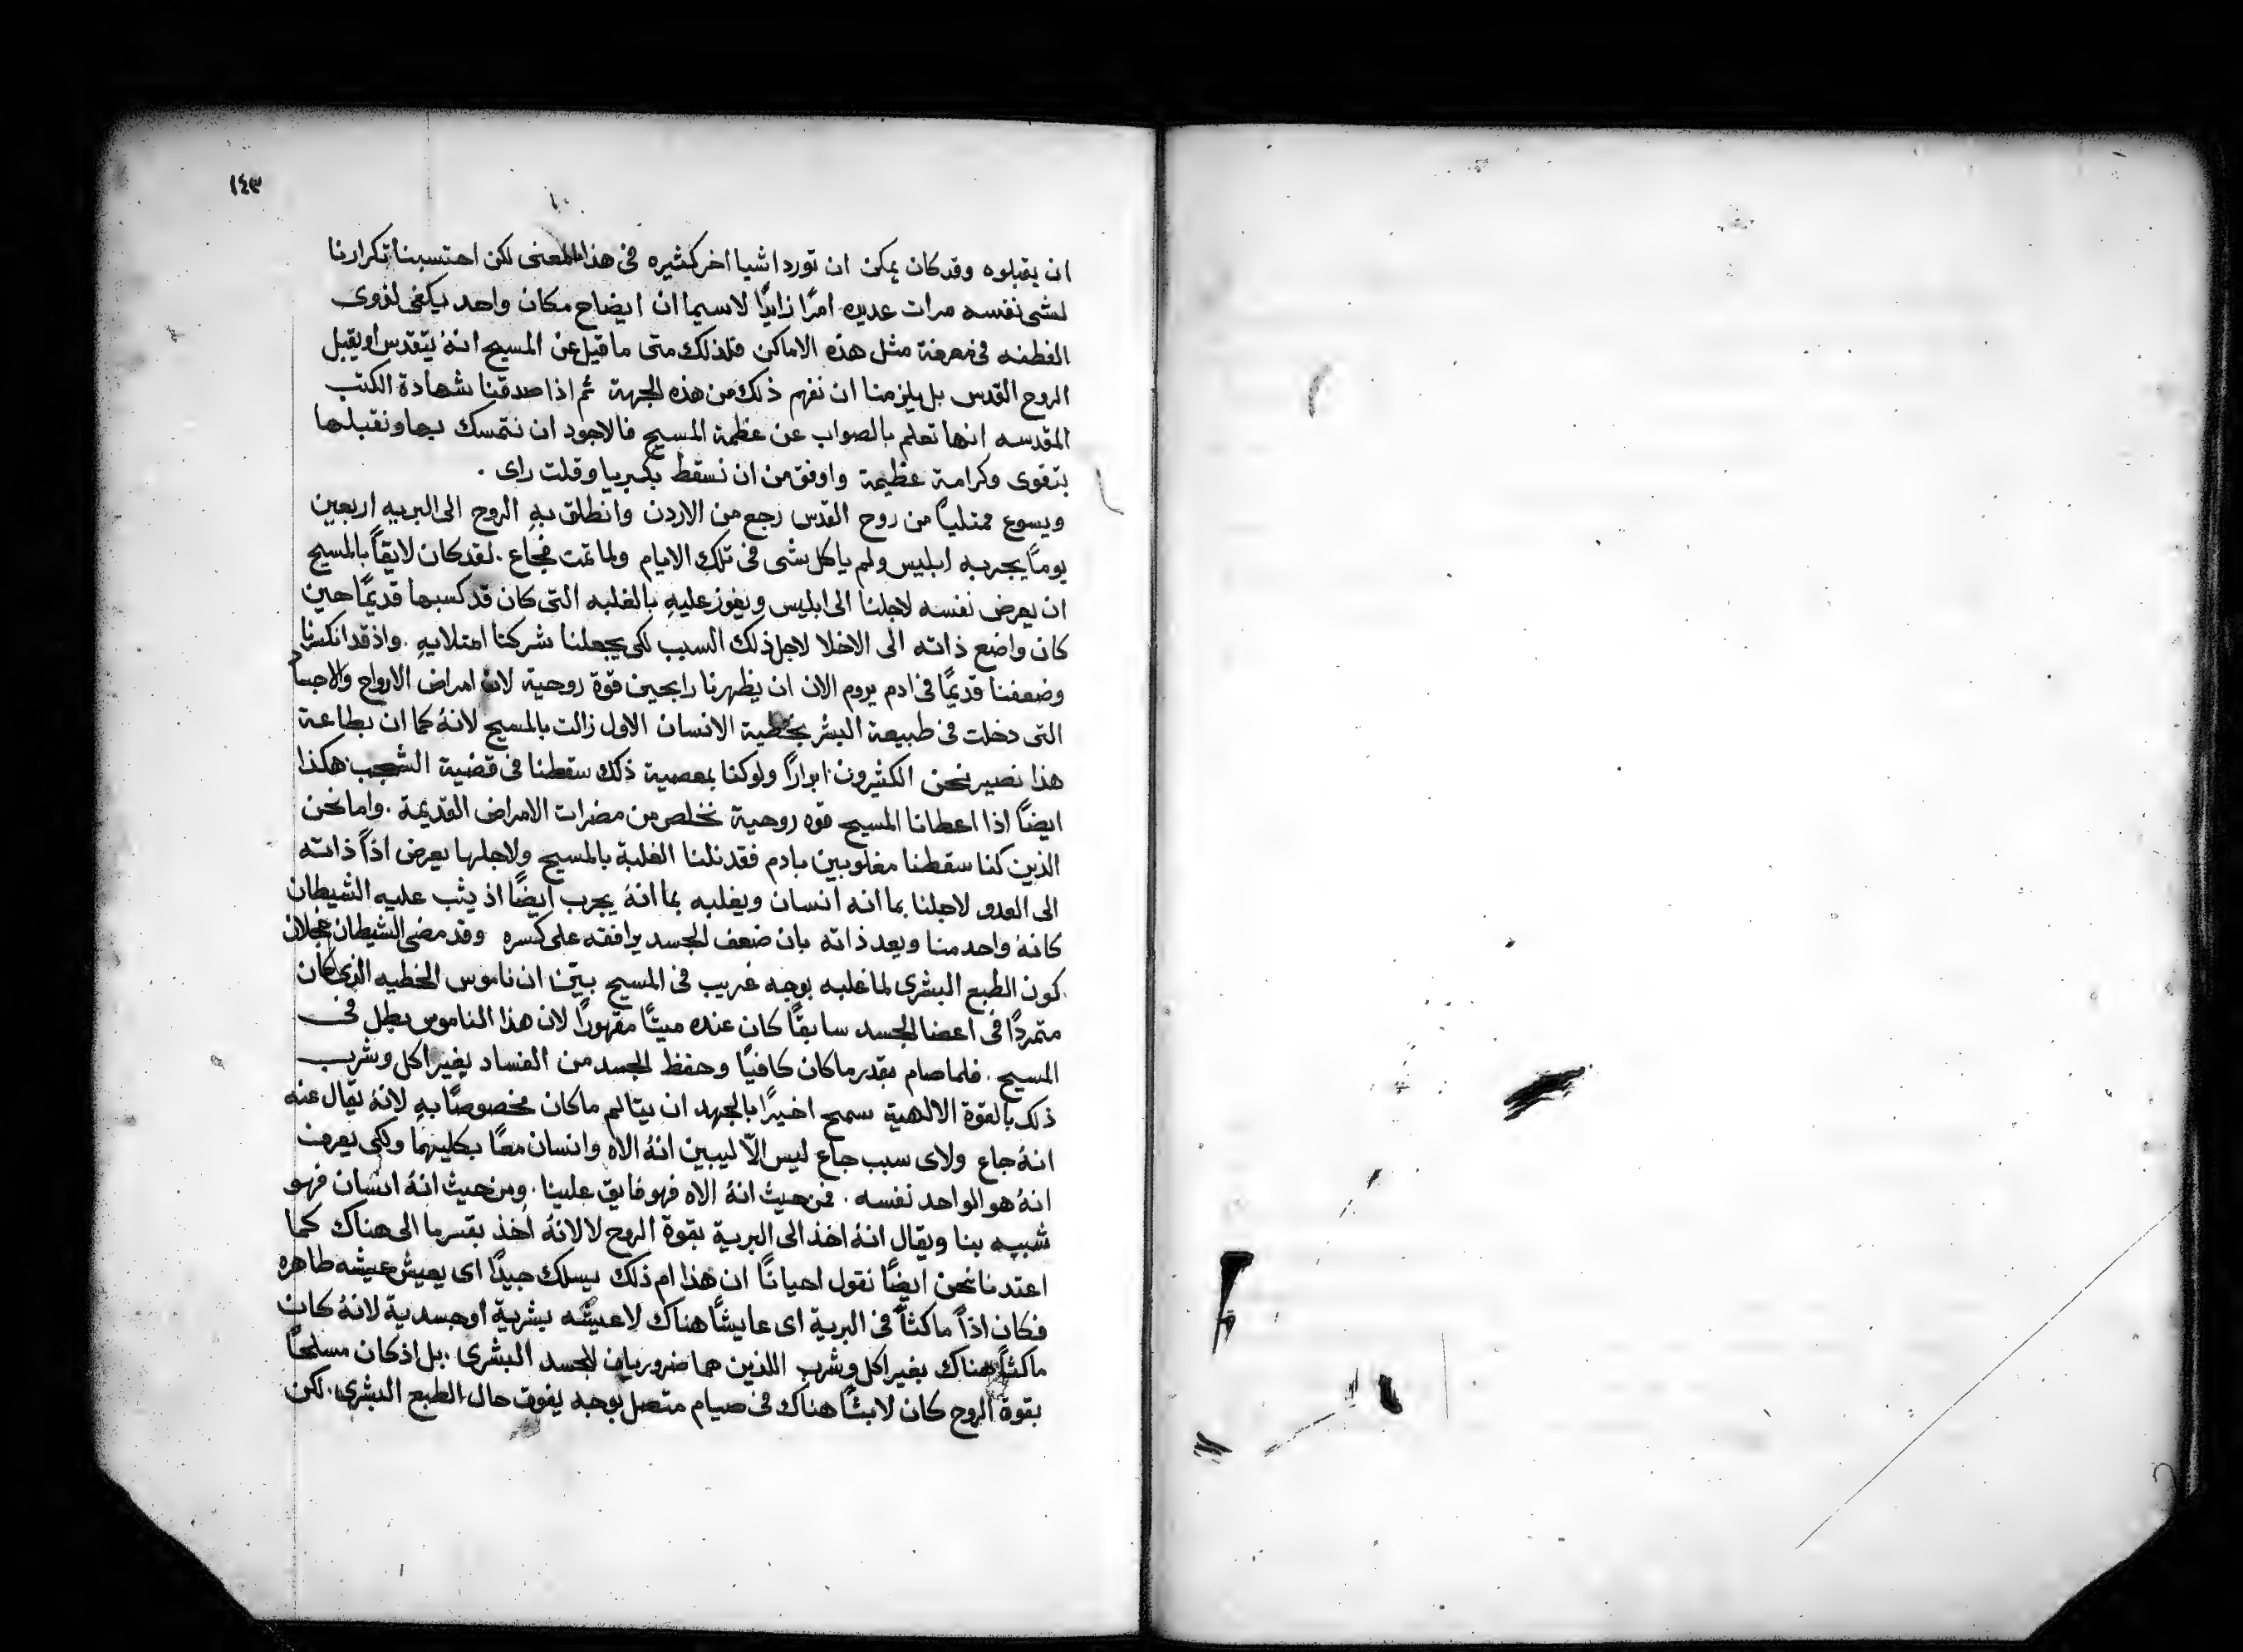 ١٤٣
ان يقبلوه وقد كان يمكن ان تورد اشيا اخر كثيره فى هذا المعنى لكن احتسبنا تكرارنا
لشى نفسه مرات عديده امرًا زايدًا لاسيما ان ايضاح مكان واحد يكفى لذوى
الفطنه فى معرفة مثل هذه الاماكن فلذلك متى ما قيل عن المسيح انهُ يتقدس او يقبل
الروح القدس بل يلزمنا ان نفهم ذلك من هذه الجهة ثم اذا صدقنا شهادة الكتب
المقدسه انها تعلم بالصواب عن عظمة المسيح فالاجود ان نتمسك بها ونقبلها
بتقوى وكرامة عظيمة واوفق من ان نسقط بكبريا وقلت راى .
ويسوع ممتليًا من روح القدس رجع من الاردن وانطلق بهِ الروح الى البريه اربعين
يومًا يجربه ابليس ولم ياكل بشى فى تلك الايام ولما تمت فجاع . لقد كان لايقاً بالمسيح
ان يعرض نفسه لاجلنا الى ابليس ويفوز عليهِ بالغلبه التى كان قد كسبها قديمًا حين
كان واضع ذاته الى الاخلا لاجل ذلك السبب لكى يجعلنا شركتا امتلايهِ . واذ قد انكسرنا
وضعفنا قديمًا فى ادم يروم الان ان يظهرنا رابحين قوّة روحية لان امراض الارواح والاجساد
التى دخلت فى طبيعة البشر بخطية الانسان الاول زالت بالمسيح لانهُ كما ان بطاعة
هذا نصير نحن الكثيرون ابراراً ولو كنا بمعصية ذلك سقطنا فى قضية الشجب هكذا
ايضاً اذا اعطانا المسيح قوه روحية نخلص من مضرات الامراض القديمة . واما نحن
الذين كنا سقطنا مغلوبين بادم فقد نلنا الغلبة بالمسيح ولاجلها يعرض اذاً ذاته
الى العدو لاجلنا بما انه انسان ويغلبه بما انهُ يجرب ايضًا اذ يثب عليه الشيطان
كانهُ واحد منا ويعد ذاته بان ضعف الجسد يرافقه على كسره وقد مضى الشيطان خجلان
كون الطبع البشرى لما غلبه بوجه غريب فى المسيح بيّن ان ناموس الخطيه الذى كان
متمردًا فى اعضا الجسد سابقًا كان عنده ميتًا مقهورًا لان هذا الناموس بطل فى
المسيح . فلما صام بقدر ما كان كافيًا وحفظ الجسد من الفساد بغير اكل وشرب
ذلك بالقوة الالهية سمح اخيرًا بالجهد ان يتالم ما كان مخصوصًا بهِ لانهُ يقال عنه
انهُ جاع ولاى سبب جاع ليس الّا ليبين انهُ الاه وانسان معًا بكليهما ولكى يعرف
انهُ هو الواحد نفسه . فمن حيث انهُ الاه فهو فايق علينا . ومن حيث انهُ انسان فهو
شبيه بنا ويقال انهُ اخذ الى البرية بقوة الروح لا لانهُ اخذ بقسر ما الى هناك كما
اعتدنا نحن ايضًا نقول احيانًا ان هذا ام ذلك يسلك جيدًا اى يعيش عيشه طاهره
فكان اذاً ماكثاً فى البرية اى عايشًا هناك لا عيشه بشرية او جسدية لانهُ كان
ماكثاً هناك بغير اكل وشرب اللذين هما ضروريان للجسد البشرى . بل اذ كان مسلحًا
بقوة الروح كان لابثًا هناك فى صيام متصل بوجه يفوق حال الطبع البشرى . لكن